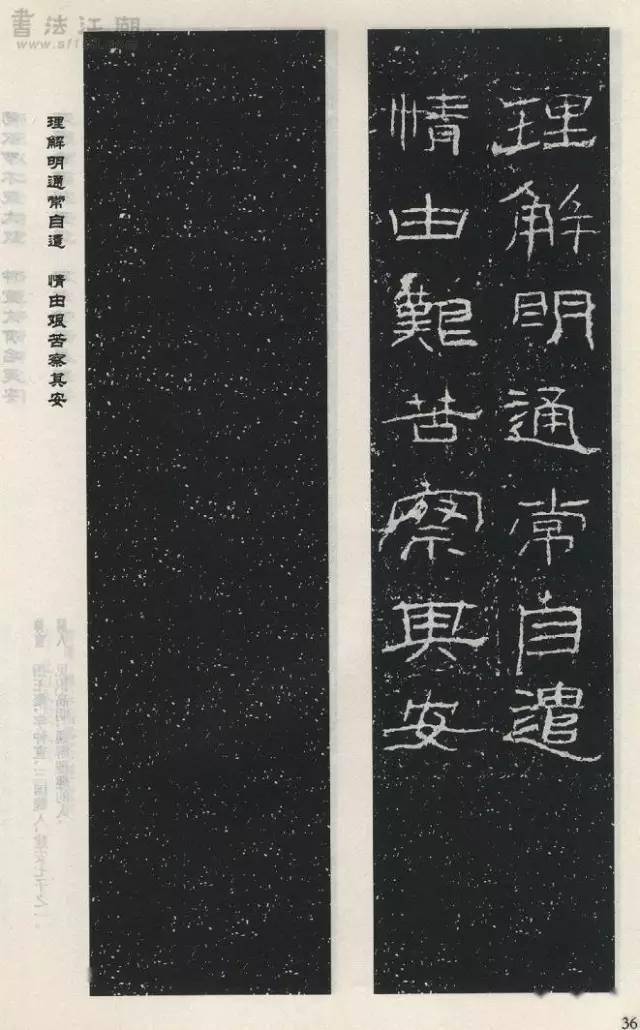 書法江湖
理解明通常自遣
情由艱苦察其安
理解明通常自遣 情由艰苦察其安
36